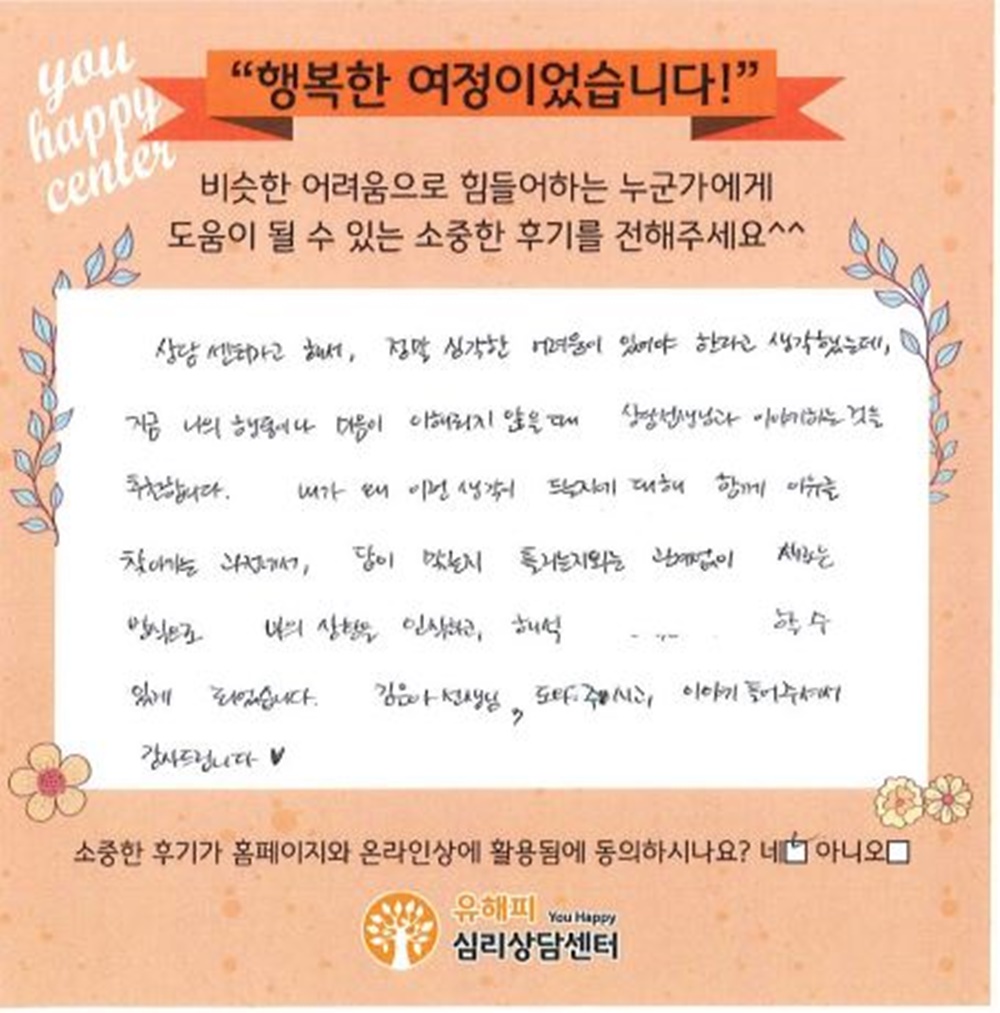 you
happy
center
“행복한 여정이었습니다!”
비슷한 어려움으로 힘들어하는 누군가에게
도움이 될 수 있는 소중한 후기를 전해주세요^^
상담 센터라고 해서, 정말 심각한 어려움이 있어야 한다고 생각했는데,
지금 나의 행동이나 마음이 이해되지 않을 때 상담선생님과 이야기하는 것을
추천합니다. 내가 왜 이런 생각이 드는지에 대해 함께 이유를
찾아가는 과정에서, 답이 맞는지 틀리는지와는 관계없이 새로운
방식으로 나의 상황을 인식하고, 해석 할 수
있게 되었습니다. 김은아 선생님, 도와주시고, 이야기 들어주셔서
감사드립니다 ♥
소중한 후기가 홈페이지와 온라인상에 활용됨에 동의하시나요? 네 아니오
유해피 You Happy
심리상담센터